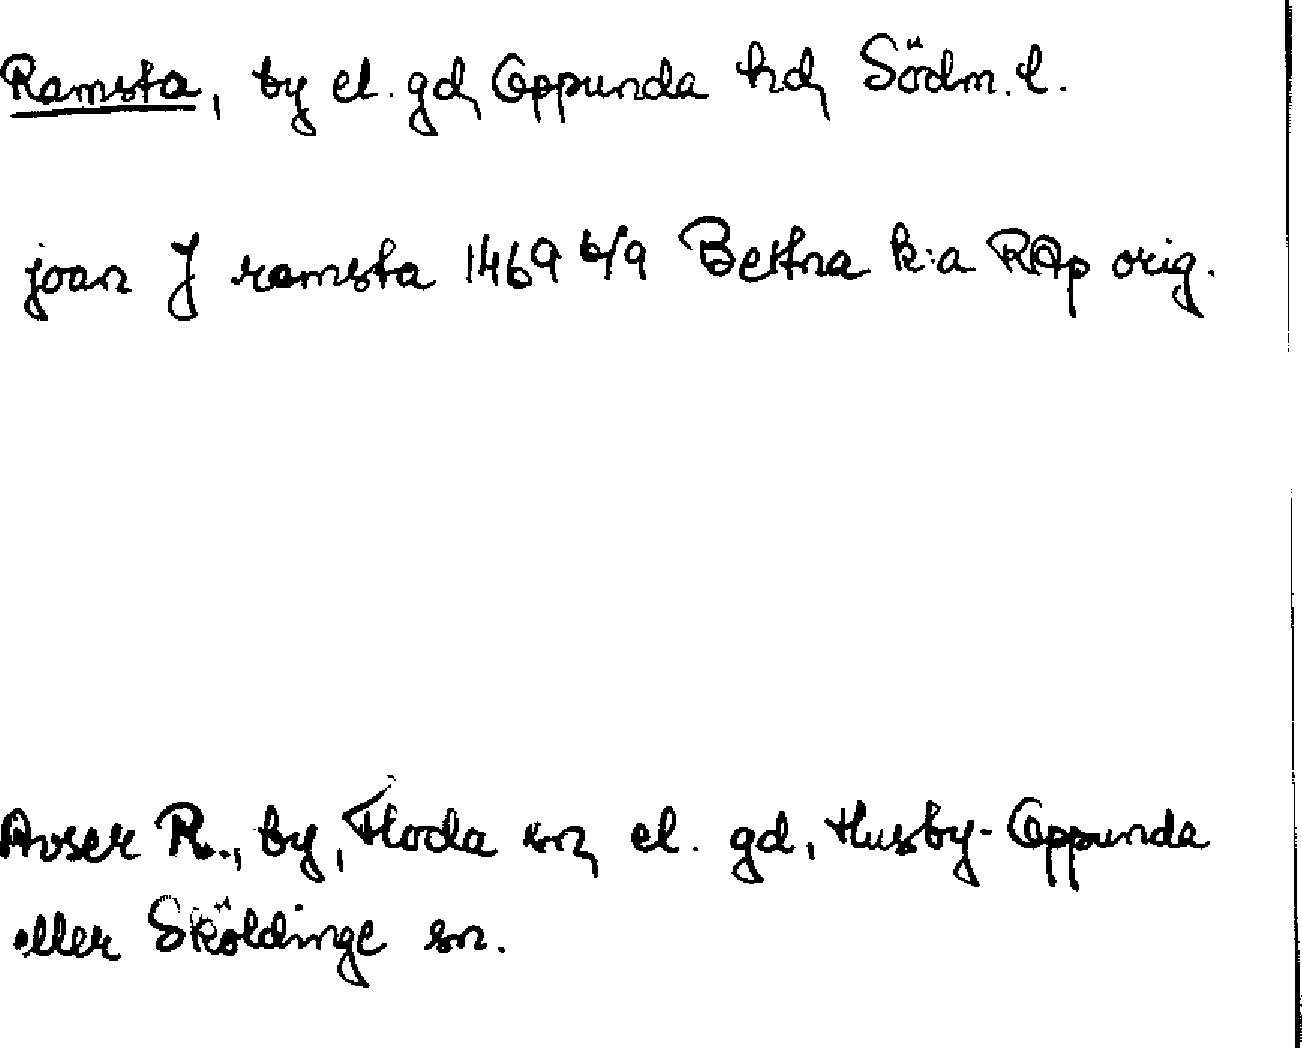 Ramsta, by el. gd, Oppunda hd, Södm. l.
joan J ramsta 1469 6/9 Bettna k:a RAp orig.
Avser R., by, Floda sn, el. gd, Husby-Oppunda
eller Sköldinge sn.